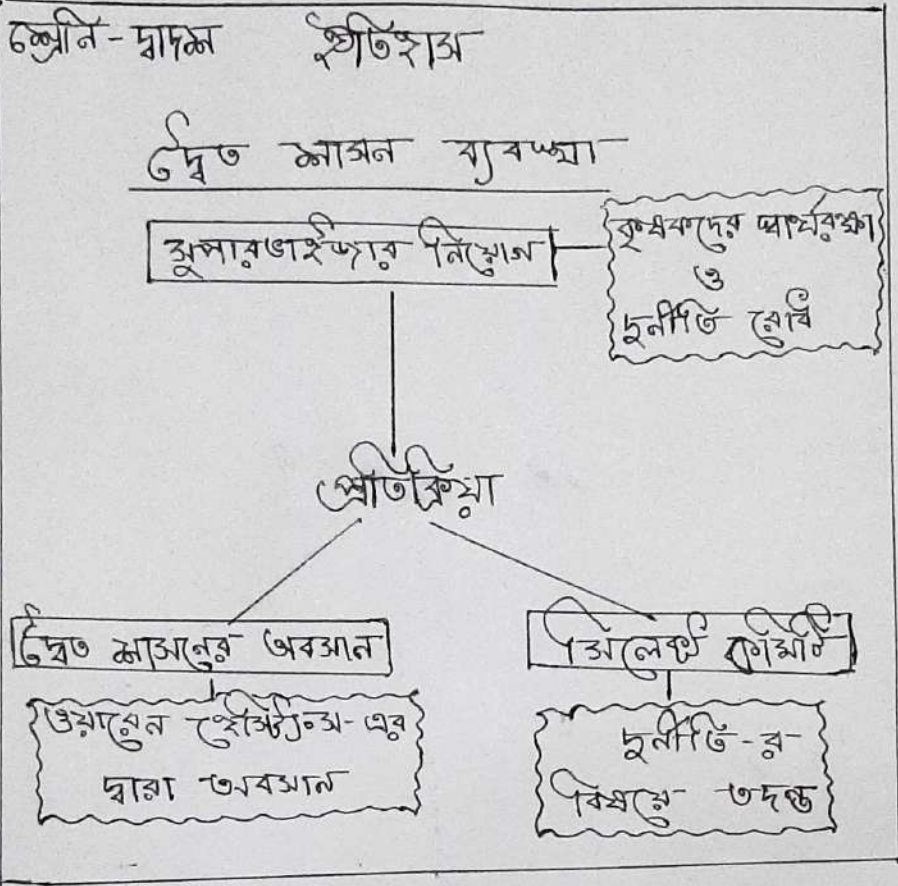 শ্রেনি - দ্বাদশ ইতিহাস
দ্বৈত শাসন ব্যবস্থা
সুপারভাইজার নিয়োগ
কৃষকদের স্বার্থরক্ষা
ও
দুর্নীতি রোধ
প্রতিক্রিয়া
দ্বৈত শাসনের অবসান
ওয়ারেন হেস্টিংস-এর
দ্বারা অবসান
সিলেক্ট কমিটি
দুর্নীতি-র
বিষয়ে তদন্ত